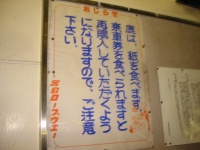 おしらせ
鹿は、紙を食べます。
乗車券を食べられますと
再購入していただくよう
になりますので、ご注意
下さい。
宮島ロープウエー